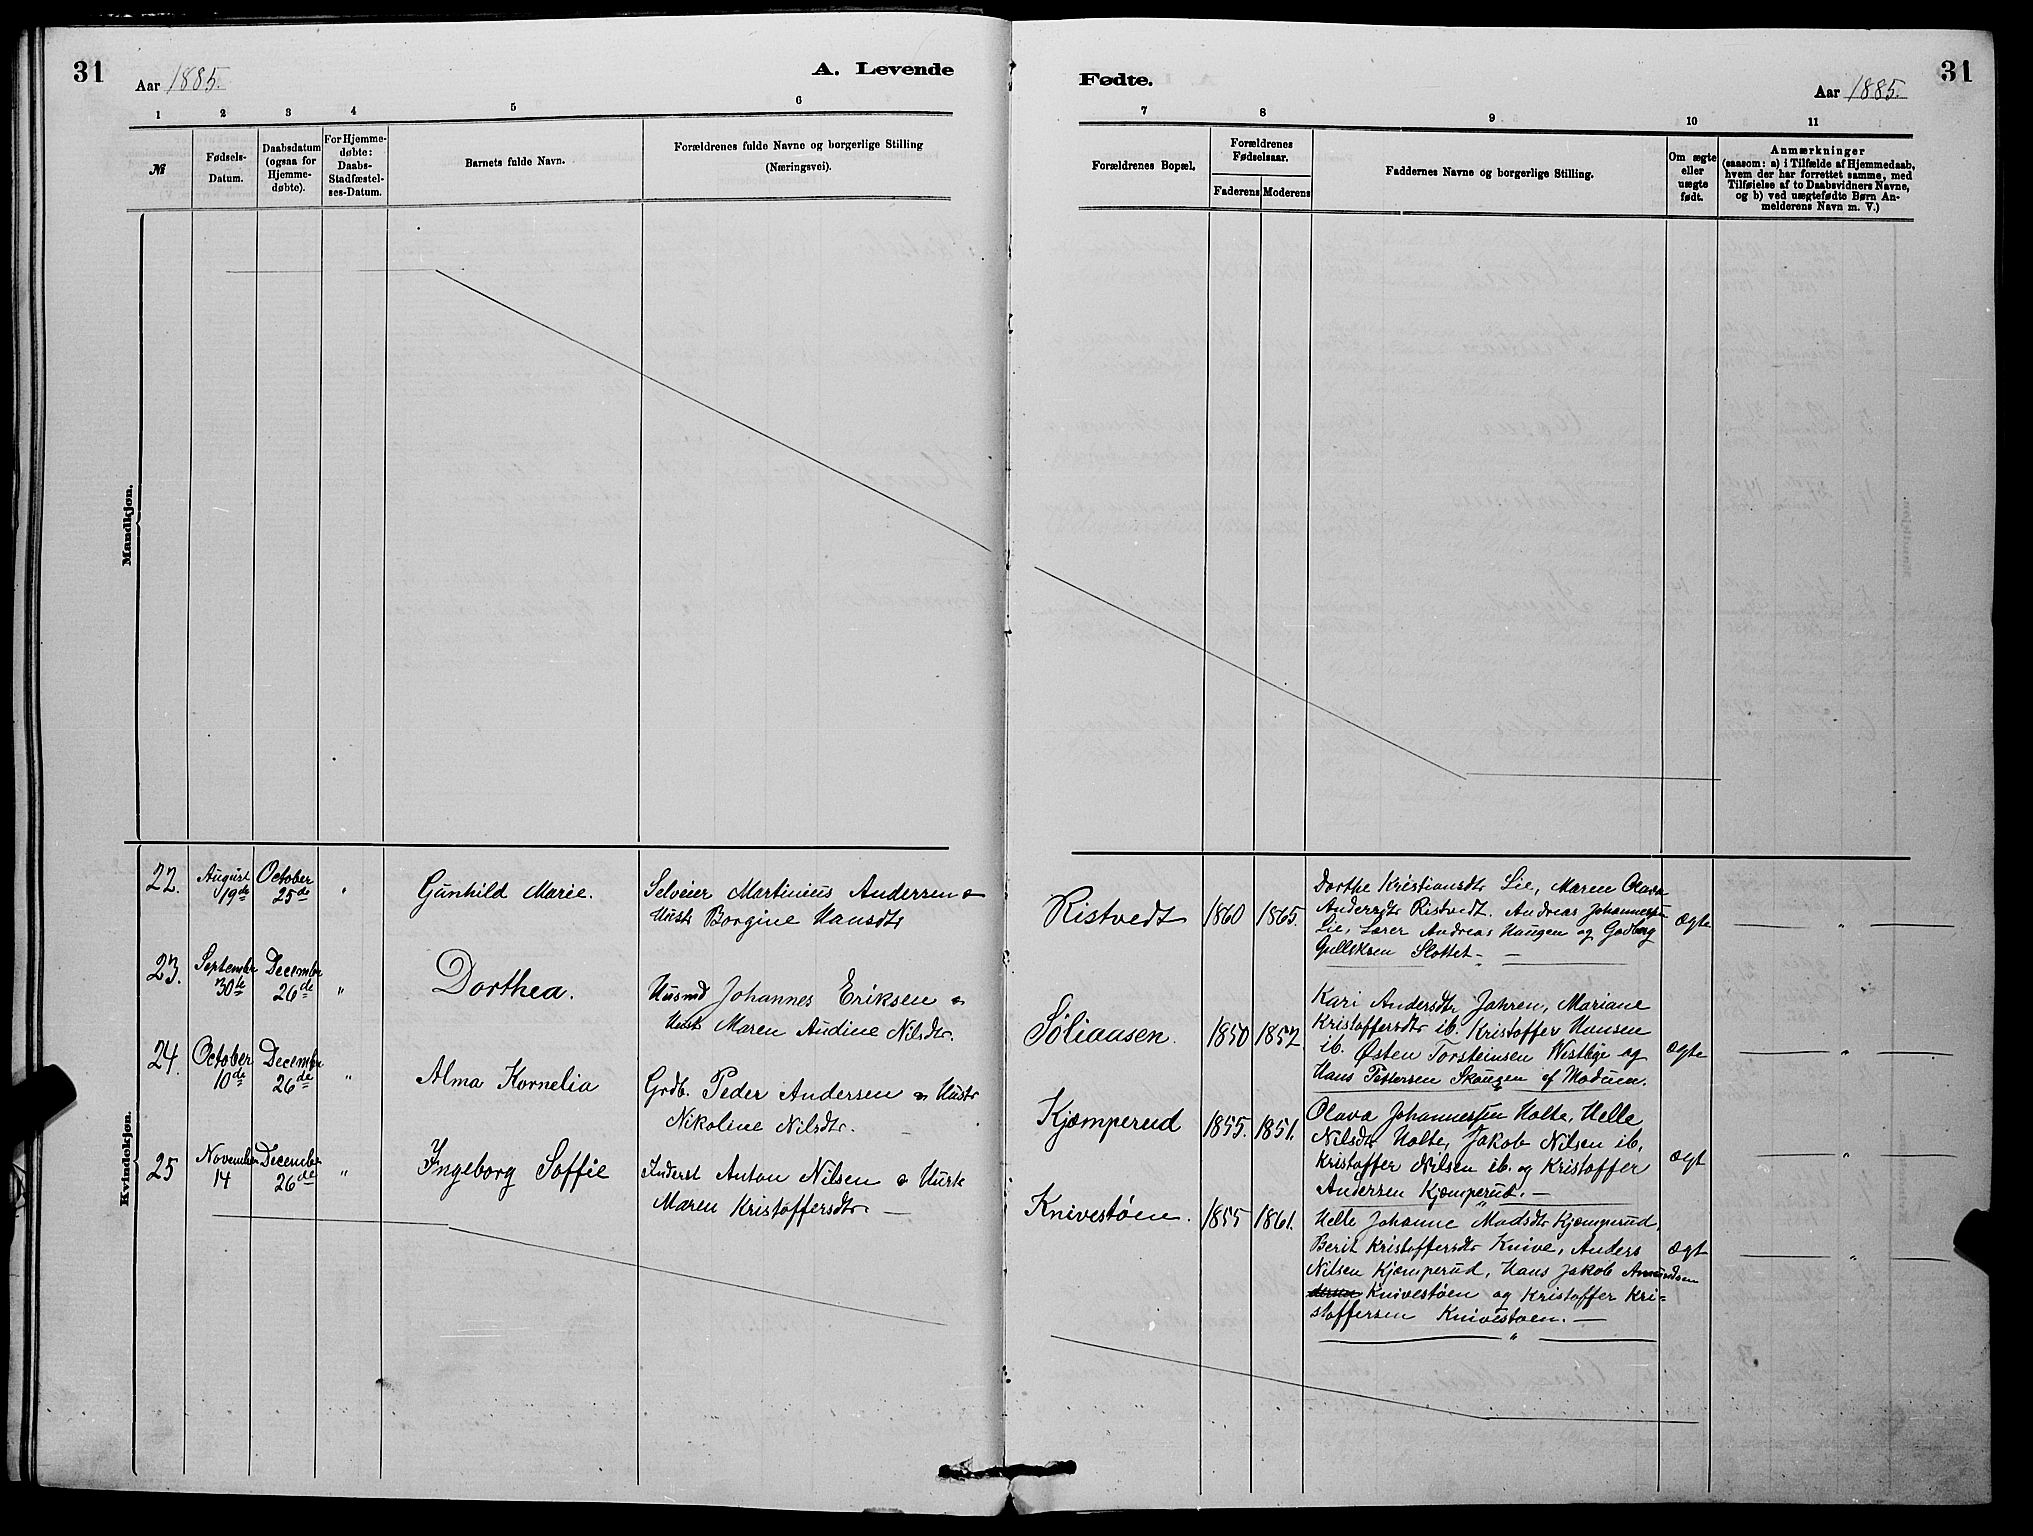 31
Aar 1885.
A. Levende
Fødte.
Aar 1885.
31
1 2 3 4 5 6
7 8 9 10 11
№
Fødsels-
Datum.
Daabsdatum
(ogsaa for
Hjemme-
døbte).
For Hjemme-
døbte:
Daabs-
Stadfæstel-
ses-Datum.
Barnets fulde Navn.
Forældrenes fulde Navne og borgerlige Stilling
(Næringsvei).
Forældrenes Bopæl.
Forældrenes
Fødselsaar.
Faderens Moderens
Faddernes Navne og borgerlige Stilling.
Om ægte
eller
uægte
født.
Anmærkninger
(saasom: a) i Tilfælde af Hjemmedaab,
hvem der har forrettet samme, med
Tilføielse af to Daabsvidners Navne,
og b) ved uægtefødte Børn An-
melderens Navn m. V.)
Mandkjøn.
Kvindekjøn.
22.
August
19de
October
25de
"
Gunhild Marie.
Selveier Martinius Andersen &
Hustr Borgine Hansdtr
Ristvedt
1860
1865.
Dorthe Kristiansdtr Lie, Maren Olava
Andersdtr Ristvedt. Andreas Johannessen
Lie, Lærer Andreas Haugen og Gudbrg
Gulleksen Slottet. —
Ægte
— " —
23.
September
30te
December
26de
"
Dorthea.
Husmd Johannes Eriksen &
Hust Maren Audine Nilsdtr.
Søliaasen.
1850
1857
Kari Andersdtr Jahren, Mariane
Kristoffersdtr ib. Kristoffer Hansen
ib. Østen Torsteinsen Vestlige og
Hans Pettersen Skougen af Modum.
Ægte
— " —
24.
October
10de
December
26de
"
Alma Kornelia
Grdb. Peder Andersen & Hustr
Nikoline Nilsdtr. —
Kjæmperud
1855.
1851.
Olava Johannessen Holte, Helle
Nilsdtr Holte, Jakob Nilsen ib.
Kristoffer Nilsen ib. og Kristoffer
Andersen Kjæmperud. —
Ægt
— " —
25
November
14
December
26de
"
Ingeborg Soffie
Inderst Anton Nilsen & Hust
Maren Kristoffersdtr —
Knivestøen.
1855
1861.
Helle Johanne Madsdtr Kjæmperud,
Berit Kristoffersdtr Knive, Anders
Nilsen Kjæmperud, Hans Jakob Amundsen
Knivestøen og Kristoffer Kri=
stoffersen Knivestøen. —
Ægt
— " —
"